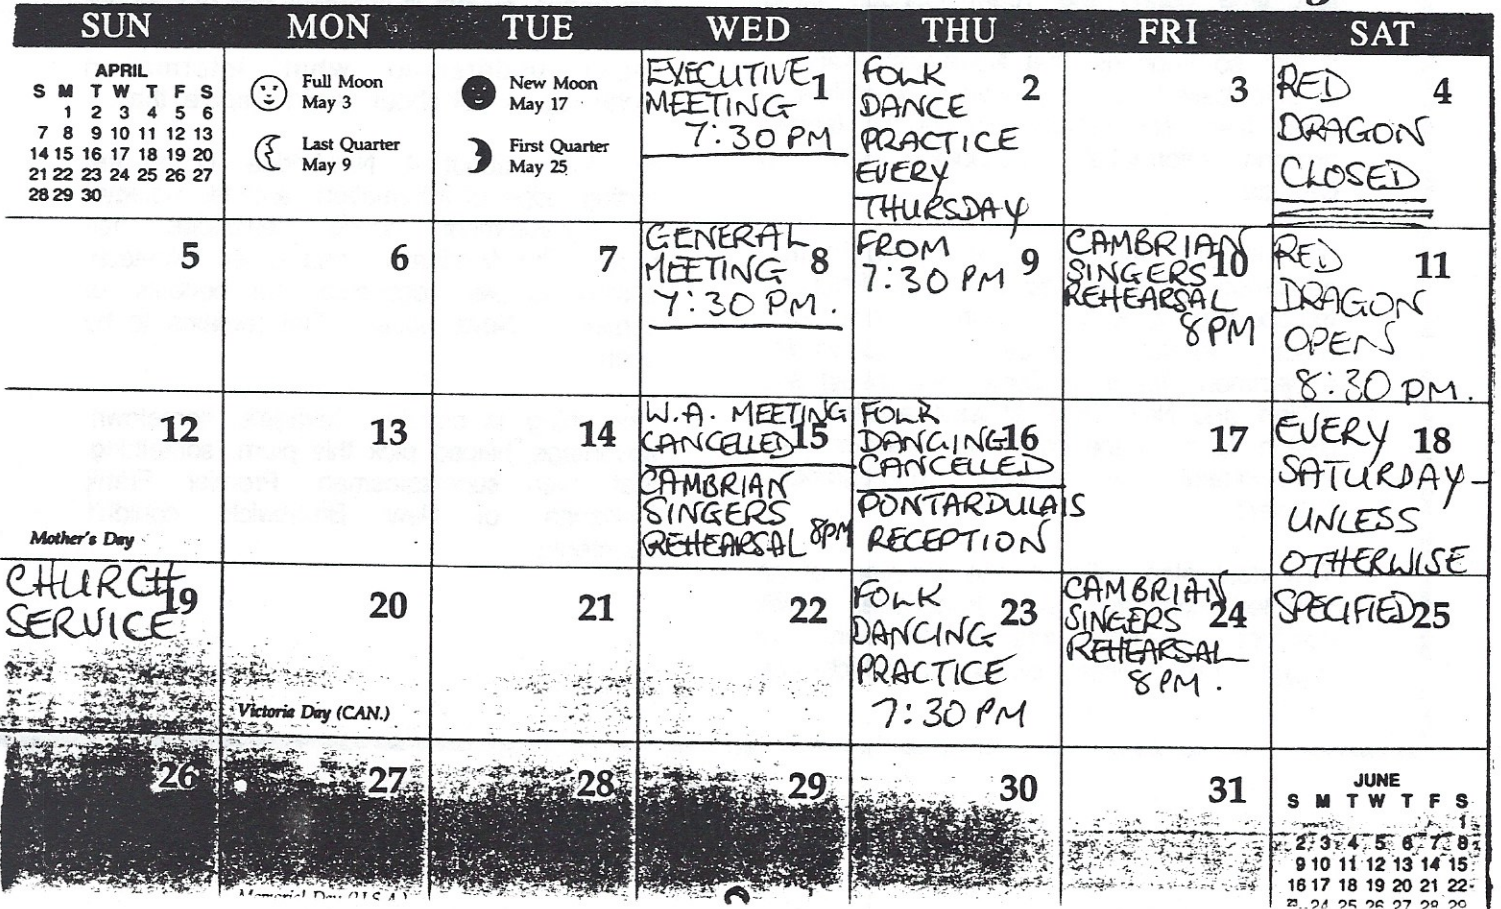 SUN MON TUE WED THU FRI SAT
APRIL
S M T W T F S
1 2 3 4 5 6
7 8 9 10 11 12 13
14 15 16 17 18 19 20
21 22 23 24 25 26 27
28 29 30
Full Moon
May 3
Last Quarter
May 9
New Moon
May 17
First Quarter
May 25
EXECUTIVE 1
MEETING
7:30 PM
FOLK 2
DANCE
PRACTICE
EVERY
THURSDAY
3
RED 4
DRAGON
CLOSED
5
6
7
GENERAL
MEETING 8
7:30 PM.
FROM 9
7:30 PM
CAMBRIAN
SINGERS 10
REHEARSAL
8PM
RED 11
DRAGON
OPEN
8:30 PM.
12
Mother's Day
13
14
W.A. MEETING
CANCELLED 15
CAMBRIAN
SINGERS
REHEARSAL 8PM
FOLK
DANCING 16
CANCELLED
PONTARDULAIS
RECEPTION
17
EVERY 18
SATURDAY-
UNLESS
OTHERWISE
CHURCH
SERVICE 19
20
Victoria Day (CAN.)
21
22
FOLK
DANCING 23
PRACTICE
7:30 PM
CAMBRIAN
SINGERS 24
REHEARSAL
8PM.
SPECIFIED 25
26
27
Memorial Day (U.S.A.)
28
29
30
31
JUNE
S M T W T F S
1
2 3 4 5 6 7 8
9 10 11 12 13 14 15
16 17 18 19 20 21 22
24 25 26 27 28 29